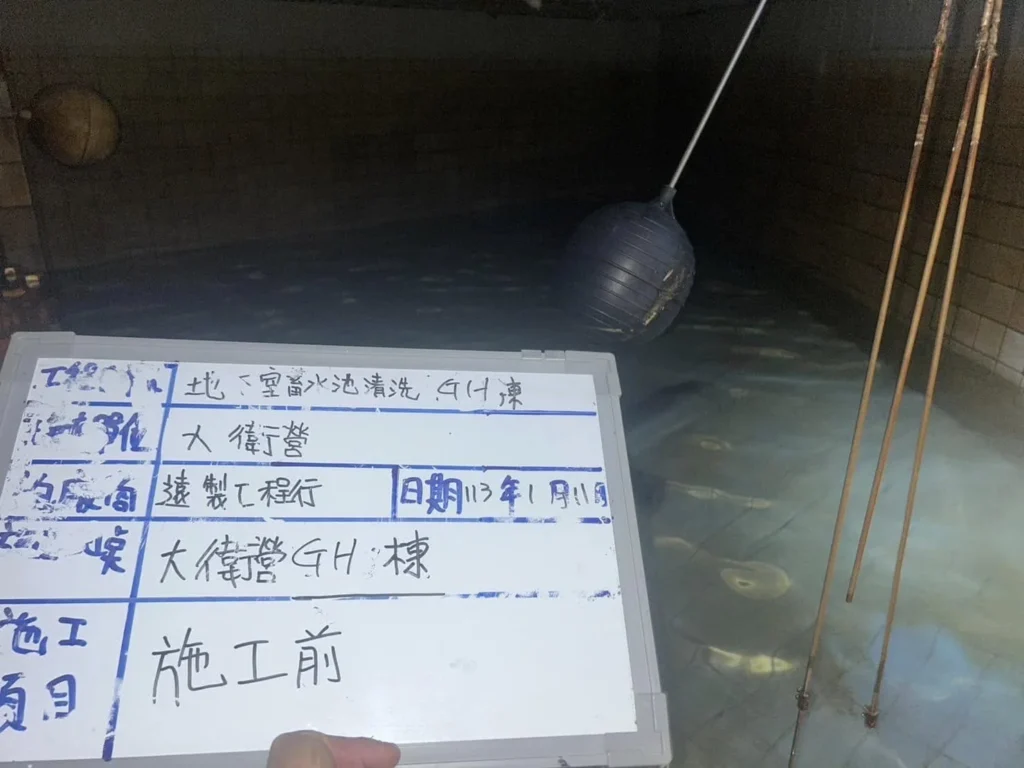 工程 地下室蓄水池清洗 GH棟
大衛營
遠製工程行 日期 113年1月11日
大衛營GH棟
施工項目 施工前